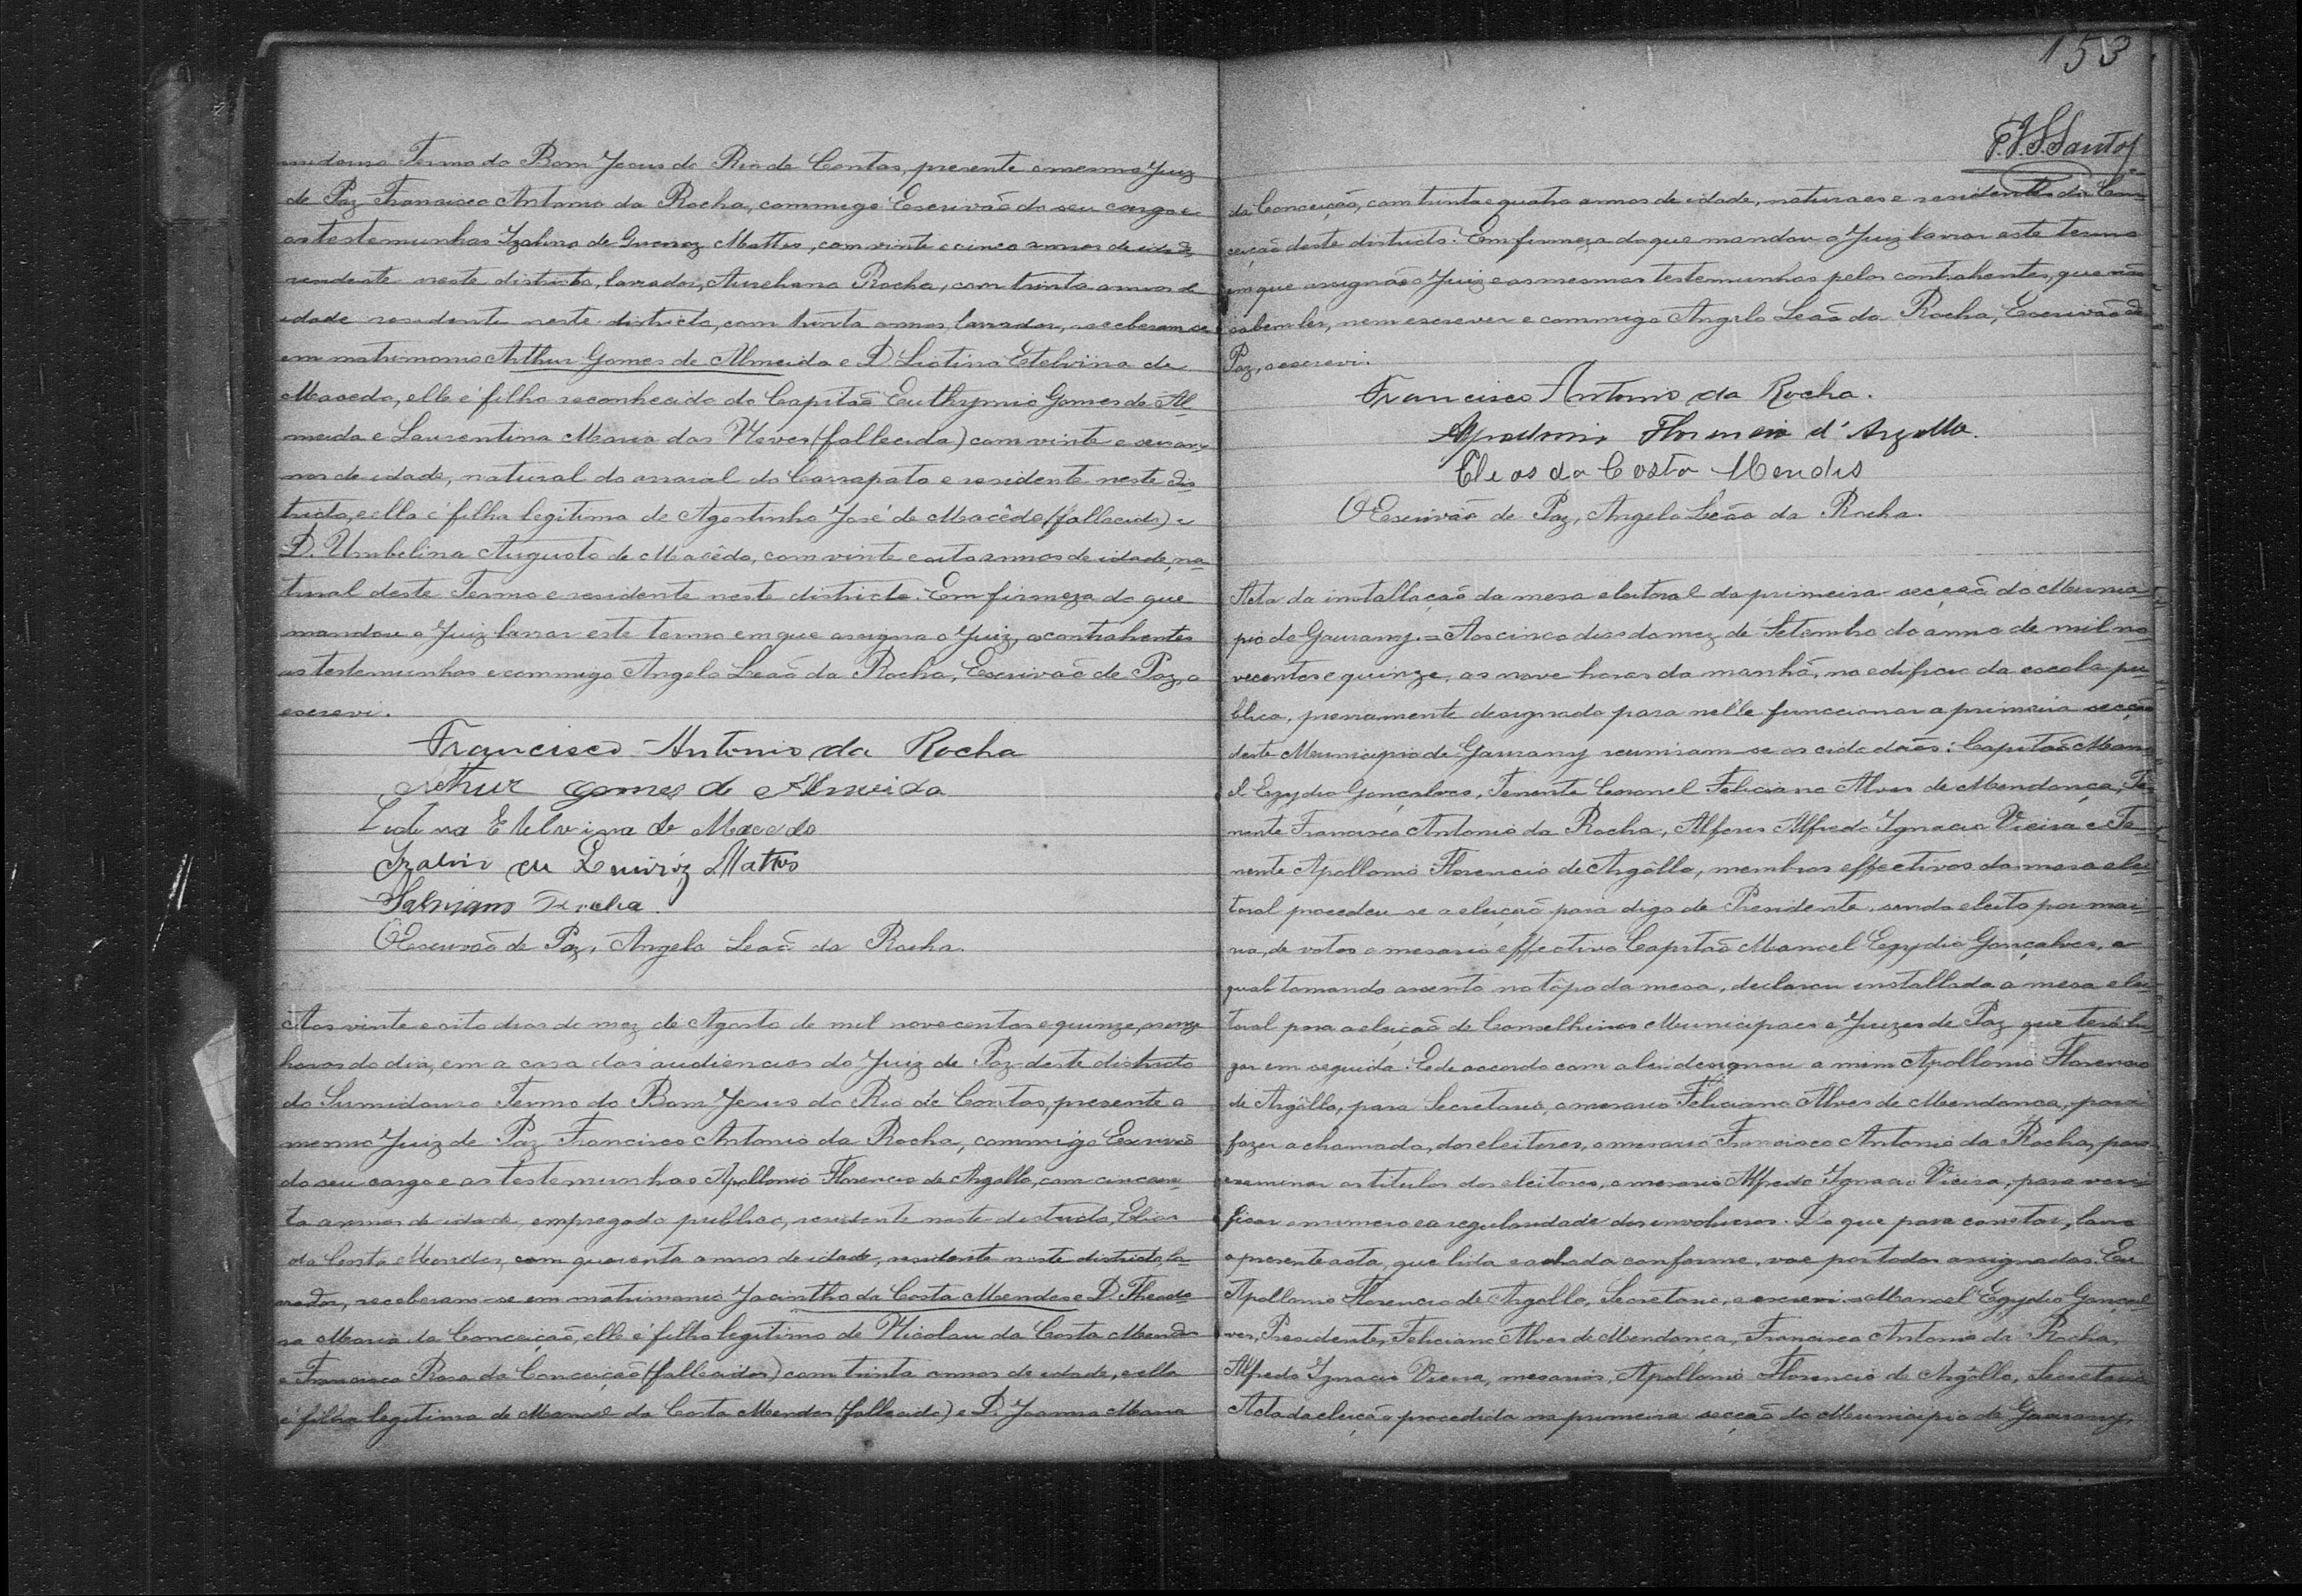 midouro Termo do Bom Jesus do Rio de Contas, presente o mesmo Juiz
de Paz Francisco Antonio da Rocha, commigo Escrivão do seu cargo e
as testemunhas Izalino de Mattos, com vinte e cinco annos de idade,
residente neste districto, lavrador, Rocha, com trinta annos de
idade residente neste districto, com trinta annos, lavrador, receberam-se
em matrimonio Arthur Gomes de Almeida e D. Etelvina de
Macedo, elle é filho reconhecido do Capitão Euthymio Gomes de Al
meida e Laurentina Maria das Neves (fallecida) com vinte e seis an
nos de idade, natural do arraial do Carrapato e residente neste dis
tricto, e ella é filha legitima de Agostinho José de Macêdo (fallecido) e
D. Umbelina Augusta de Macêdo, com vinte e oito annos de idade, na
tural deste Termo e residente neste districto. Em firmeza do que
mandou o Juiz lavrar este termo em que assigna o Juiz, os contrahentes
as testemunhas e commigo Angelo Leão da Rocha, Escrivão de Paz, o
escrevi.
Francisco Antonio da Rocha
Arthur Gomes de Almeida
Etelvina de Macedo
Mattos
Rocha.
O Escrivão de Paz, Angelo Leão da Rocha.
Aos vinte e oito dias do mez de Agosto de mil novecentos e quinze,
horas do dia, em a casa das audiencias do Juiz de Paz deste districto
do Sumidouro Termo do Bom Jesus do Rio de Contas, presente o
mesmo Juiz de Paz Francisco Antonio da Rocha, commigo Escrivão
do seu cargo e as testemunhas Apollonio Florencio de Argollo, com cincoen
ta annos de idade, empregado publico, residente neste districto, Elias
da Costa Mendes, com quarenta annos de idade, residente neste districto, la
vrador, receberam-se em matrimonio Jacintho da Costa Mendes e D. Theodo
ra Maria da Conceição, elle é filho legitimo de Nicolau da Costa Mendes
e Francisca Rosa da Conceição (fallecidos) com trinta annos de idade, e ella
é filha legitima de Manoel da Costa Mendes (fallecido) e D. Joanna Maria
153
F.J.S.Santos
da Conceição, com trinta e quatro annos de idade, naturaes e residentes da Con
ceição deste districto. Em firmeza do que mandou o Juiz lavrar este termo
em que assignão o Juiz e as mesmas testemunhas pelos contrahentes, que não
sabem ler, nem escrever e commigo Angelo Leão da Rocha, Escrivão de
Paz, o escrevi.
Francisco Antonio da Rocha.
Apollonio Florencio d'Argollo.
Elias da Costa Mendes
O Escrivão de Paz, Angelo Leão da Rocha.
Acta da installação da mesa eleitoral da primeira secção do Munici
pio de Guarany. = Aos cinco dias do mez de Setembro do anno de mil no
vecentos e quinze, as nove horas da manhã, no edificio da escola pu
blica, previamente designado para nelle funccionar a primeira secção
deste Municipio de Guarany reuniram-se os cidadãos: Capitão Mano
el Egydio Gonçalves, Tenente Coronel Feliciano Alves de Mendonça, Te
nente Francisco Antonio da Rocha, Alferes Alfredo Ignacio Vieira e Te
nente Apollonio Florencio de Argôllo, membros effectivos da mesa elei
toral procedeu-se a eleição para digo de Presidente, sendo eleito por maio
ria, de votos o mesario effectivo Capitão Manoel Egydio Gonçalves, o
qual tomando assento no tôpo da mesa, declarou installada a mesa elei
toral para a eleição de Conselheiros Municipaes e Juizes de Paz que terá lu
gar em seguida. E de accordo com a lei designou a mim Apollonio Florencio
de Argôllo, para Secretario, o mesario Feliciano Alves de Mendonça, para
fazer a chamada, dos eleitores, o mesario Francisco Antonio da Rocha, para
examinar os titulos dos eleitores, o mesario Alfredo Ignacio Vieira, para veri
ficar o numero e a regularidade dos envolucros. Do que para constar, lavro
a presente acta, que lida e achada conforme, vae por todos assignadas. Eu
Apollonio Florencio de Argollo, Secretario, o escrevi = Manoel Egydio Gonçal
ves, Presidente, Feliciano Alves de Mendonça, Francisco Antonio da Rocha,
Alfredo Ignacio Vieira, mesarios, Apollonio Florencio de Argôllo, Secretario
Acta da eleição procedida na primeira secção do Municipio de Guarany,